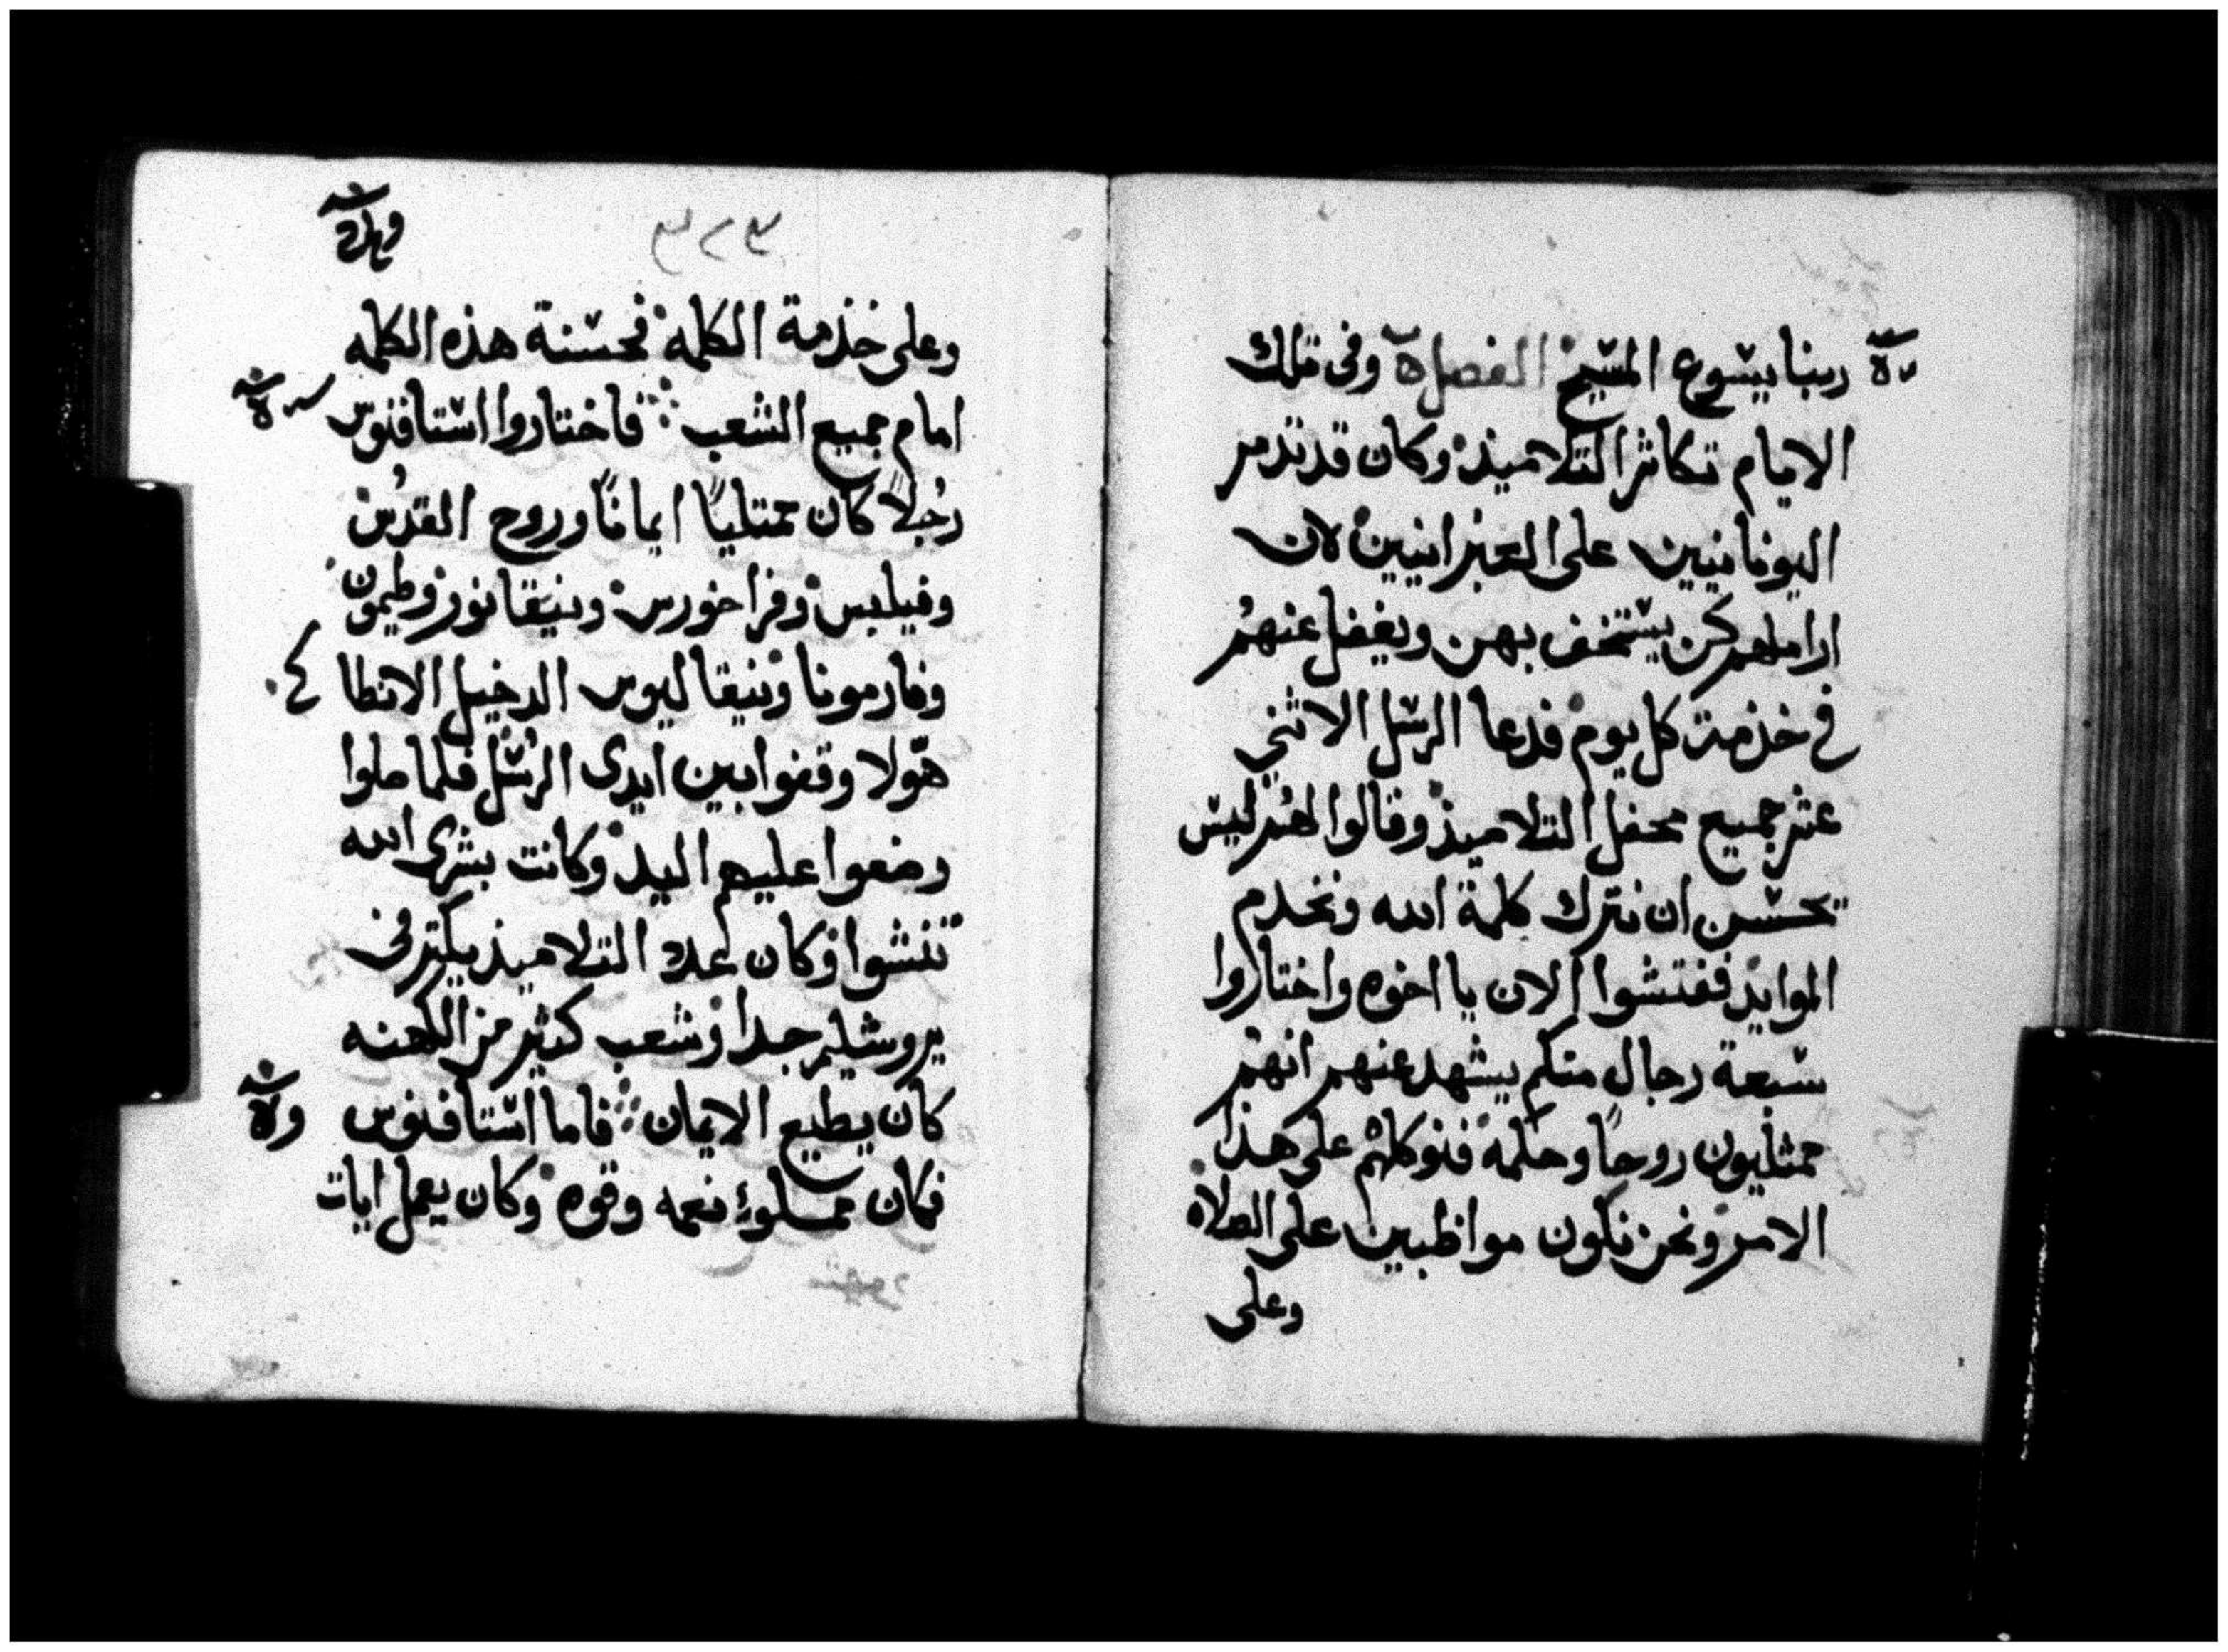 ربنا يسوع المسيح الفصل وفى تلك
الايام تكاثر التلاميذ وكان قد تذمر
اليونانيين على العبرانيين لان
اراملهم كن يستخف بهن ويغفل عنهم
فى خذمة كل يوم فدعا الرسل الاثنى
عشر جميع محفل التلاميذ وقالوا لهم ليس
يحسن ان نترك كلمة الله ونخدم
الموايد ففتشوا الان يا اخوه واختاروا
سبعة رجال منكم يشهد عنهم انهم
ممتليون روحًا وحكمه فنوكلهم على هذا
الامر ونحن نكون مواظبين على الصلاه
وعلى
٣٢٣
وعلى خذمة الكلمه فحسنة هذه الكلمه
امام جميع الشعب فاختاروا استافنوس
رجُلاً كان ممتلياً ايمانًا وروح القدُس
وفيلبس وفراخورس ونيقانور وطيمون
وفارمونا ونيقاليوس الدخيل الانطا
هولا وقفوا بين ايدى الرسُل فلما صلوا
وضعوا عليهم اليد وكانت بشرى الله
تنشوا وكان عدد التلاميذ يكثر فى
يروشليم جدا وشعب كثير من الكهنه
كان يطيع الايمان فاما استافنوس
فكان مملوء نعمه وقوه وكان يعمل ايات